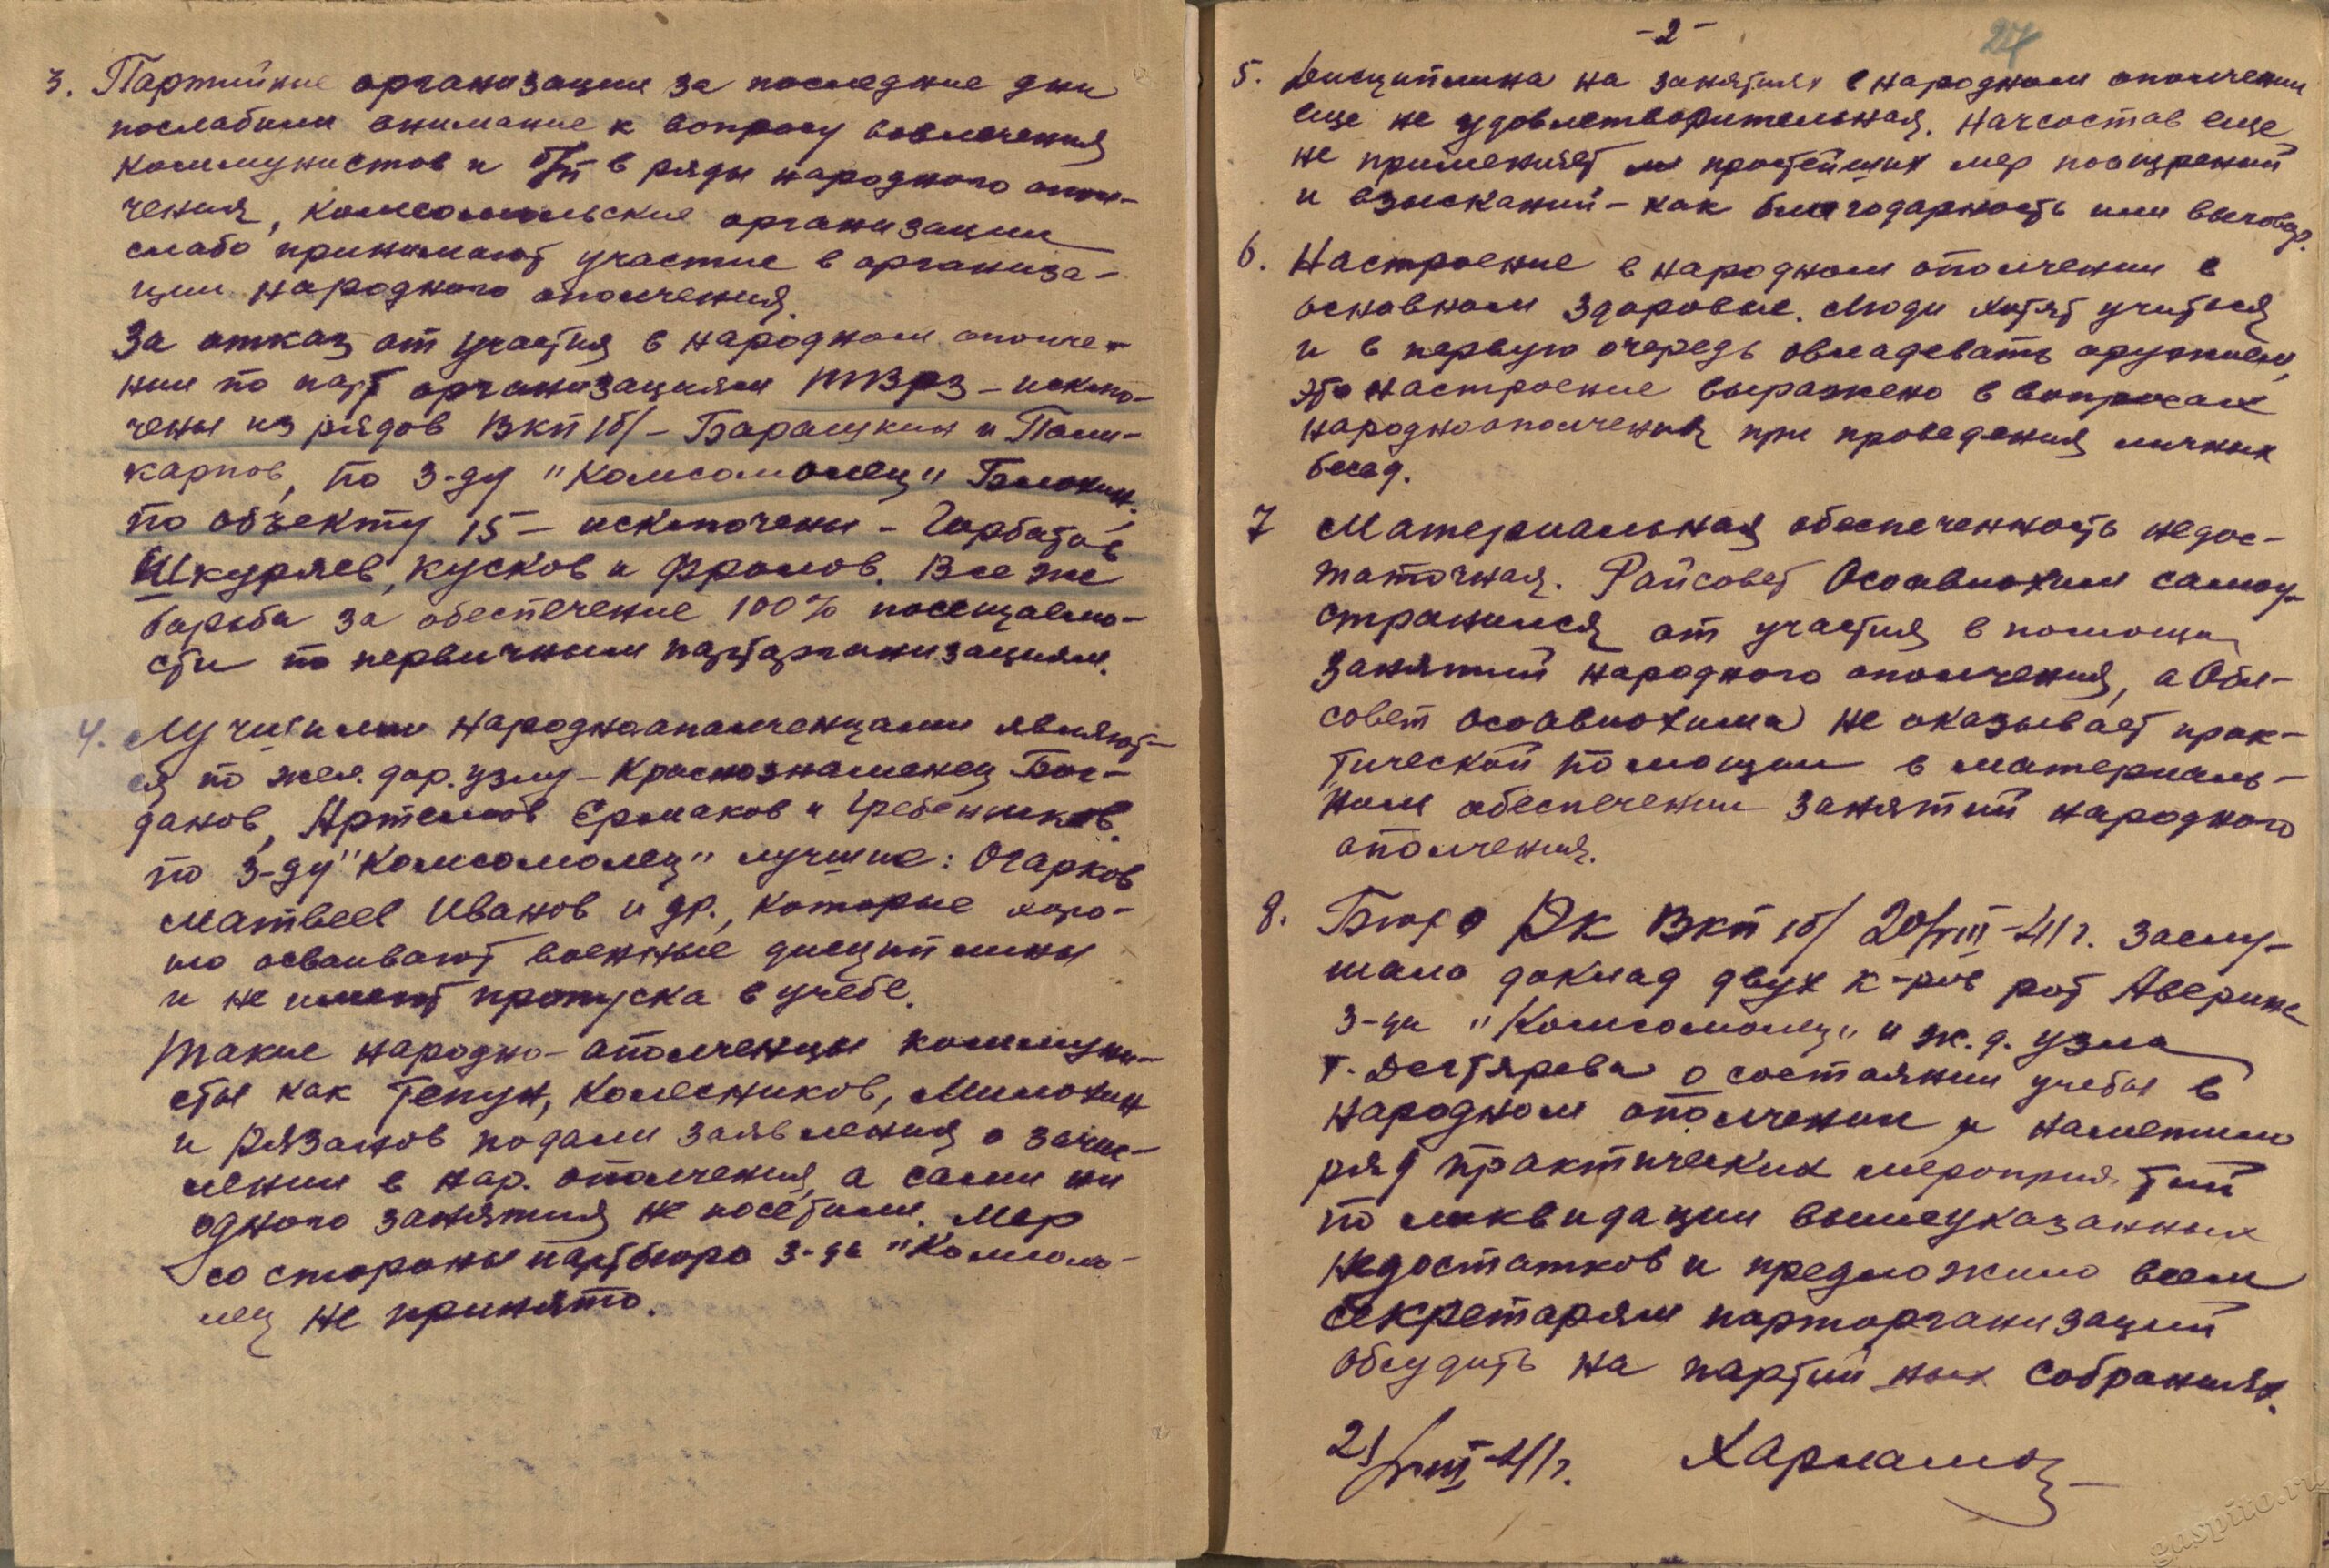 3. Партийные организации за последние дни
послабили внимание к вопросу вовлечения
коммунистов и б/п в ряды народного опол-
чения, комсомольские организации
слабо принимают участие в организа-
ции народного ополчения.
За отказ от участия в народном ополче-
нии по парт организациям ТВРЗ – исклю-
чены из рядов ВКП/б/ – Барашкин и Поли-
карпов, по з-ду "Комсомолец" Блохин,
по объекту 15 – исключены – Горбатов
Шкуряев, Кусков и Фролов. Все же
борьба за обеспечение 100% посещаемо-
сти по первичным парторганизациям.
4. Лучшими народноополченцами являют-
ся по жел. дор. узлу – Краснознаменец Бог-
данов, Артемов Ермаков и Гребенников.
по з-ду "Комсомолец" лучшие: Огарков
Матвеев Иванов и др., которые хоро-
шо осваивают военные дисциплины
и не имеют пропуска в учебе.
Такие народно-ополченцы коммуни-
сты как Тепун, Колесников, Милохин
и Рязанов подали заявления о зачис-
лении в нар. ополчения, а сами ни
одного занятия не посетили. Мер
со стороны партбюро з-да "Комсомо-
лец не принято.
-2-
27
5. Дисциплина на занятиях в народном ополчении
еще не удовлетворительная. Начсостав еще
не применяет простейших мер поощрений
и взысканий – как благодарность или выговор.
6. Настроение в народном ополчении в
основном здоровые. Люди хотят учиться
и в первую очередь овладевать оружием,
это настроение выражено в вопросах
народноополченцев при проведения личных
бесед.
7 Материальная обеспеченность недос-
таточная. Райсовет Осоавиохим самоу-
странился от участия в помощи
занятий народного ополчения, а Обл-
совет осоавиохима не оказывает прак-
тической помощи в материаль-
ном обеспечении занятий народного
ополчения.
8. Бюро РК ВКП/б/ 20/VIII-41г. заслу-
шало доклад двух к-ров рот Аверина
з-да "Комсомолец" и ж.д. узла
т. Дегтярева о состоянии учебы в
народном ополчении и наметило
ряд практических мероприятий
по ликвидации вышеуказанных
недостатков и предложило всем
секретарям парторганизаций
обсудить на партийных собраниях.
21/VIII-41г. Харламов
gaspito.ru